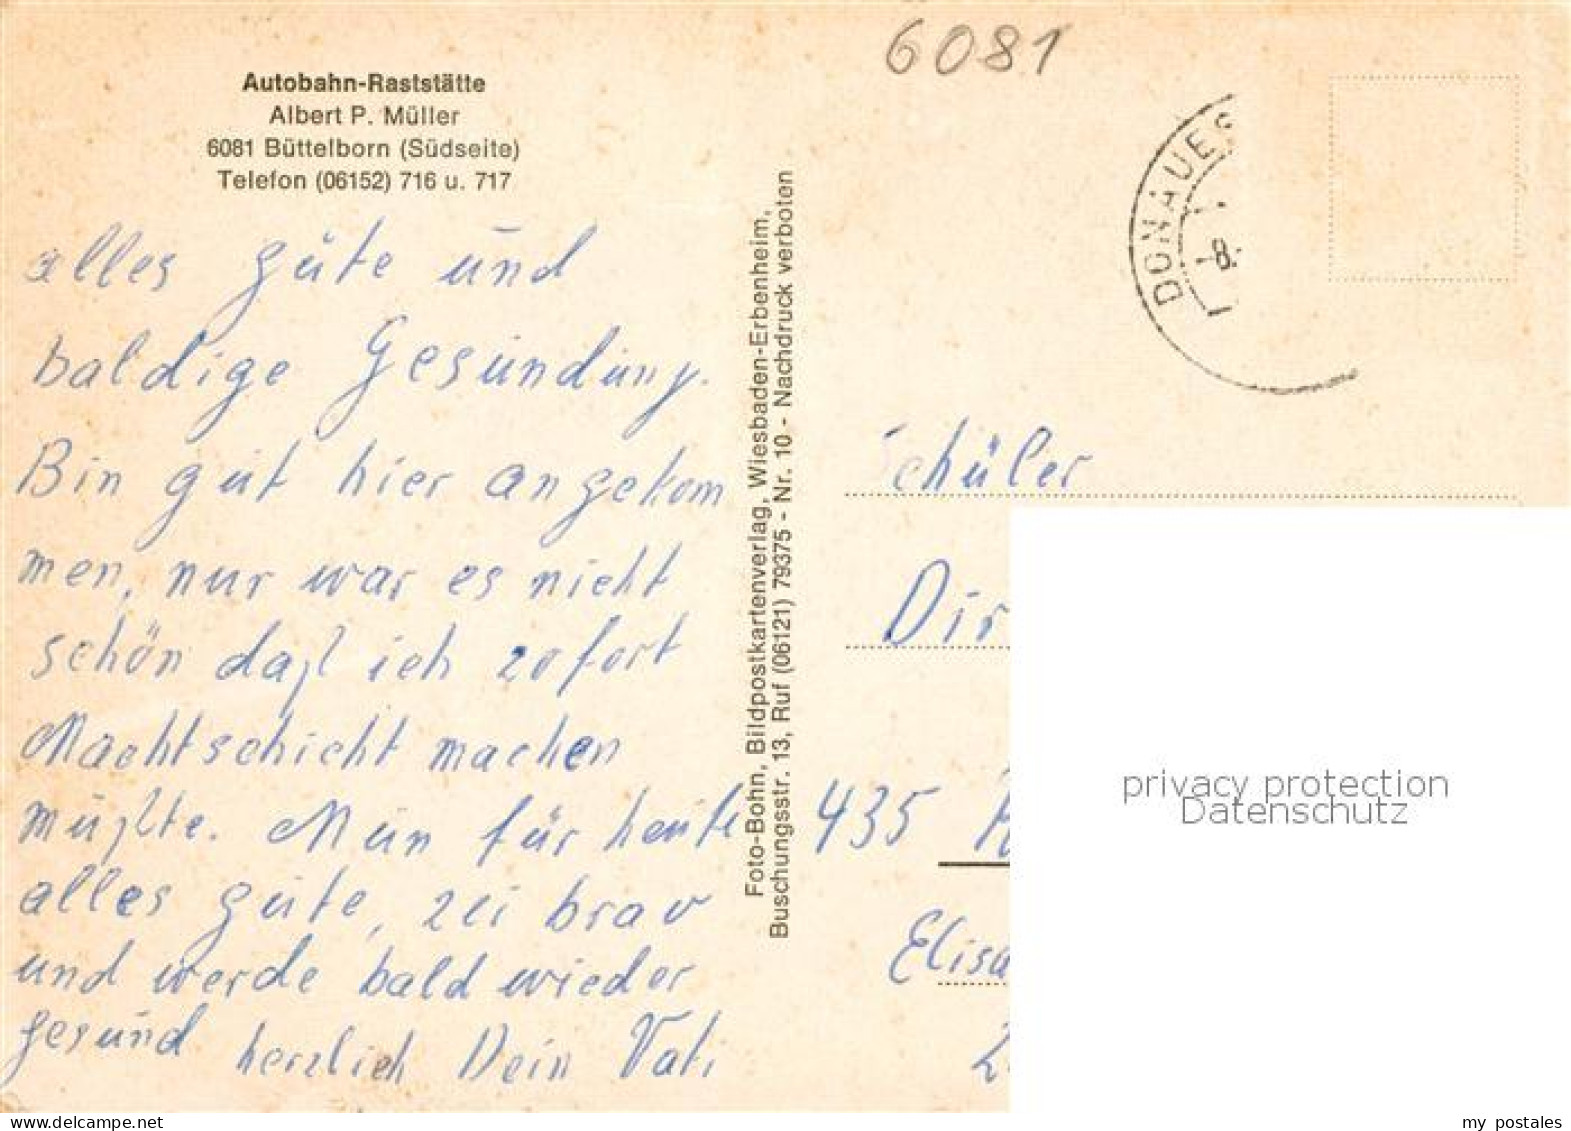 6081
Autobahn-Raststätte
Albert P. Müller
6081 Büttelborn (Südseite)
Telefon (06152) 716 u. 717
alles güte und
baldige Gesundung.
Bin gut hier angekom
men, nur war es nicht
schön daß ich sofort
Nachtschicht machen
müßte. Nun für heute
alles güte, zei brav
und werde bald wieder
gesund herzlich Dein Vati
Foto-Bohn, Bildpostkartenverlag, Wiesbaden-Erbenheim,
Buschungsstr. 13, Ruf (06121) 79375 - Nr. 10 - Nachdruck verboten
DONAUES
-8.
Schüler
Dir
435
Elisa
privacy protection
Datenschutz
my_postales